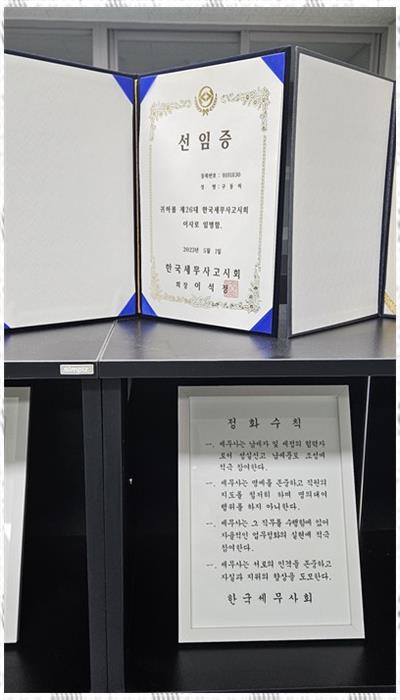 선임증
성 명 : 구 동 억
귀하를 제26대 한국세무사고시회
이사로 임명함.
2023년 5월 2일
한국세무사고시회
회장 이 석 정
정 화 수 칙
一. 세무사는 납세자 및 세정의 협력자
로서 성실신고 납세풍토 조성에
적극 참여한다.
一. 세무사는 명예를 존중하고 직원의
지도를 철저히 하며 명의대여
행위를 하지 아니한다.
一. 세무사는 그 직무를 수행함에 있어
자율적인 업무정화의 실현에 적극
참여한다.
一. 세무사는 서로의 인격을 존중하고
자질과 지위의 향상을 도모한다.
한국세무사회